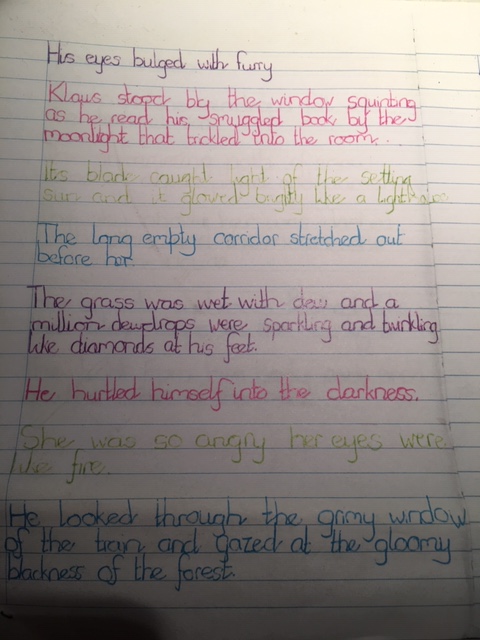 His eyes bulged with furry
Klaus stood by the window squinting
as he read his smuggled book by the
moonlight that trickled into the room.
Its blade caught light of the setting
sun and it glowed brightly like a
The long empty corridor stretched out
before her.
The grass was wet with dew and a
million dewdrops were sparkling and twinkling
like diamonds at his feet.
He hurtled himself into the darkness.
She was so angry her eyes were
like fire.
He looked through the grimy window
of the train and gazed at the gloomy
blackness of the forest.